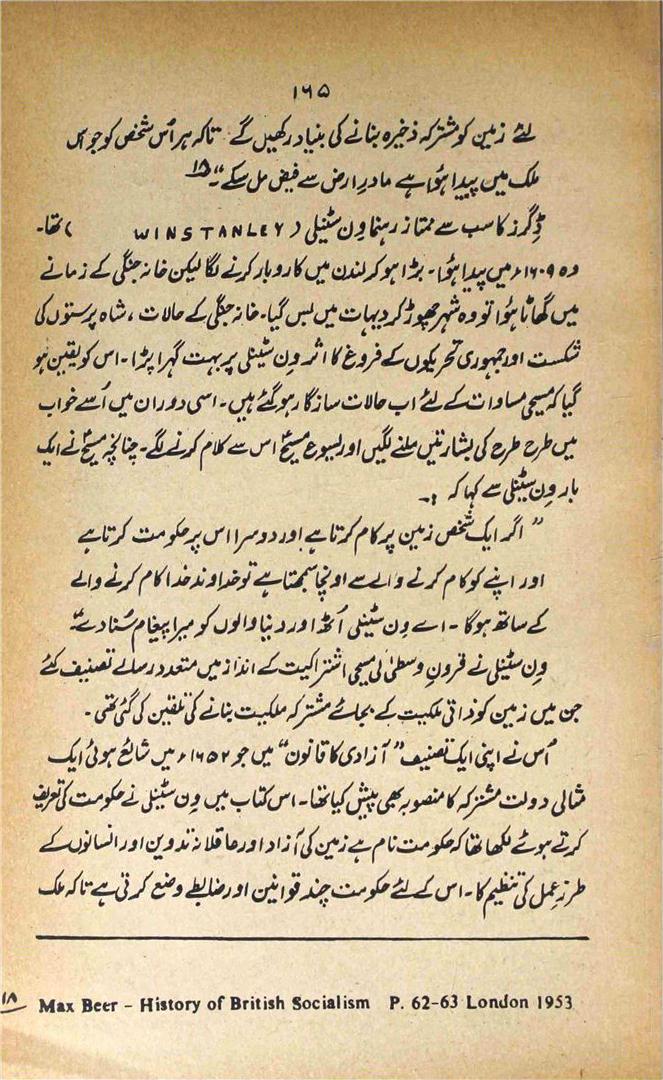 ۱۶۵
لئے زمین کو مشترکہ ذخیرہ بنانے کی بنیاد رکھیں گے تاکہ ہر اُس شخص کو جو اس
ملک میں پیدا ہُوا ہے مادرِ ارض سے فیض مل سکے"۔ ۱۸
ڈِگرز کا سب سے ممتاز رہنما وِن سٹینلی ( WINSTANLEY ) تھا۔
وہ ۱۶۰۹ء میں پیدا ہُوا۔ بڑا ہو کر لندن میں کاروبار کرنے لگا لیکن خانہ جنگی کے زمانے
میں گھاٹا ہُوا تو وہ شہر چھوڑ کر دیہات میں بس گیا۔ خانہ جنگی کے حالات، شاہ پرستوں کی
شکست اور جمہوری تحریکوں کے فروغ کا اثر وِن سٹینلی پر بہت گہرا پڑا۔ اس کو یقین ہو
گیا کہ مسیحی مساوات کے لئے اب حالات سازگار ہو گئے ہیں۔ اسی دوران میں اُسے خواب
میں طرح طرح کی بشارتیں ملنے لگیں اور یسوع مسیحؑ اس سے کلام کرنے لگے۔ چنانچہ مسیحؑ نے ایک
بار وِن سٹینلی سے کہا کہ :۔
"اگر ایک شخص زمین پر کام کرتا ہے اور دوسرا اس پر حکومت کرتا ہے
اور اپنے کو کام کرنے والے سے اونچا سمجھتا ہے تو خداوند خدا کام کرنے والے
کے ساتھ ہوگا ۔ اے وِن سٹینلی اُٹھ اور دنیا والوں کو میرا پیغام سُنا دے"
وِن سٹینلی نے قرونِ وسطیٰ کی مسیحی اشتراکیت کے انداز میں متعدد رسالے تصنیف کئے
جن میں زمین کو ذاتی ملکیت کے بجائے مشترکہ ملکیت بنانے کی تلقین کی گئی تھی۔
اُس نے اپنی ایک تصنیف "آزادی کا قانون" میں جو ۱۶۵۲ء میں شائع ہوئی ایک
مثالی دولت مشترکہ کا منصوبہ بھی پیش کیا تھا۔ اس کتاب میں وِن سٹینلی نے حکومت کی تعریف
کرتے ہوئے لکھا تھا کہ حکومت نام ہے زمین کی آزاد اور عاقلانہ تدوین اور انسانوں کے
طرزِ عمل کی تنظیم کا۔ اس کے لئے حکومت چند قوانین اور ضابطے وضع کرتی ہے تاکہ ملک
۱۸ Max Beer – History of British Socialism P. 62-63 London 1953